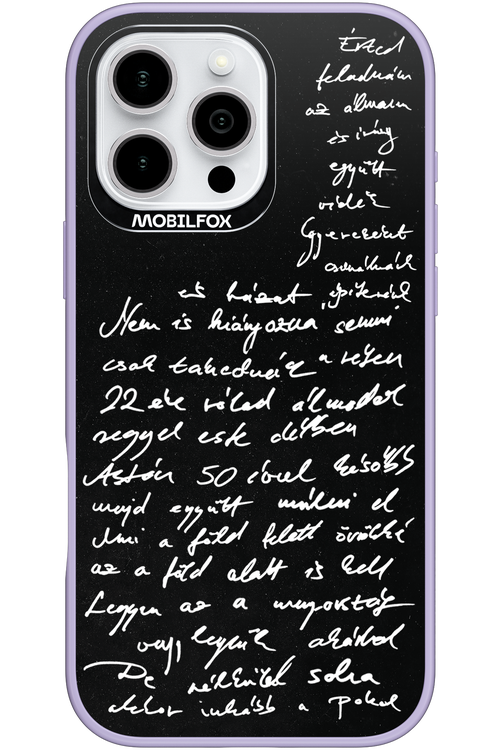 MOBILFOX
Érted
feladnám
az álmam
és így
együtt
Gyerekeket
csinálnánk
és házat építenénk
Nem is hiányozna semmi
csak tehetnénk a
22 éve rólad álmodok
reggel este délben
Aztán 50 évvel később
majd együtt múlni el
Ami a föld felett örökké
az a föld alatt is kell
Legyen az a mennyország
vagy legyünk akárhol
De nélküled soha
akkor inkább a Pokol